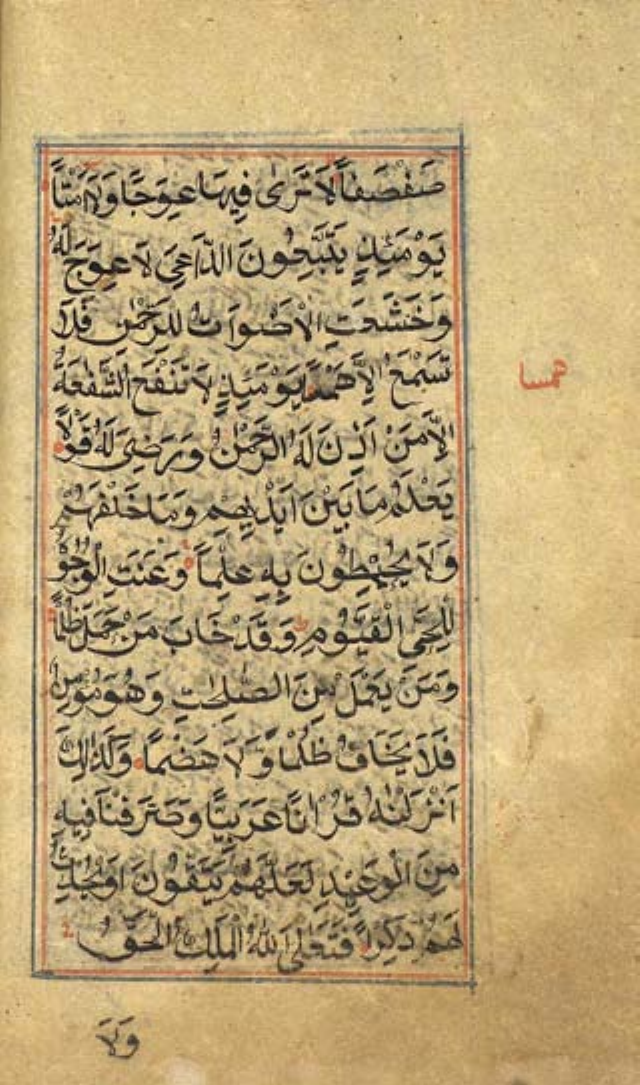 صَفْصَفًا لَا تَرَىٰ فِيهَا عِوَجًا وَلَا أَمْتًا
يَوْمَئِذٍ يَتَّبِعُونَ الدَّاعِيَ لَا عِوَجَ لَهُ
وَخَشَعَتِ الْأَصْوَاتُ لِلرَّحْمٰنِ فَلَا
تَسْمَعُ إِلَّا هَمْسًا يَوْمَئِذٍ لَا تَنْفَعُ الشَّفٰعَةُ
همسا
إِلَّا مَنْ أَذِنَ لَهُ الرَّحْمٰنُ وَرَضِيَ لَهُ قَوْلًا
يَعْلَمُ مَا بَيْنَ أَيْدِيهِمْ وَمَا خَلْفَهُمْ
وَلَا يُحِيطُونَ بِهِ عِلْمًا وَعَنَتِ الْوُجُوهُ
لِلْحَيِّ الْقَيُّومِ وَقَدْ خَابَ مَنْ حَمَلَ ظُلْمًا
وَمَنْ يَعْمَلْ مِنَ الصّٰلِحٰتِ وَهُوَ مُؤْمِنٌ
فَلَا يَخَافُ ظُلْمًا وَّلَا هَضْمًا وَكَذٰلِكَ
أَنْزَلْنٰهُ قُرْآنًا عَرَبِيًّا وَصَرَّفْنَا فِيهِ
مِنَ الْوَعِيدِ لَعَلَّهُمْ يَتَّقُونَ أَوْ يُحْدِثُ
لَهُمْ ذِكْرًا فَتَعٰلَى اللهُ الْمَلِكُ الْحَقُّ
وَلَا